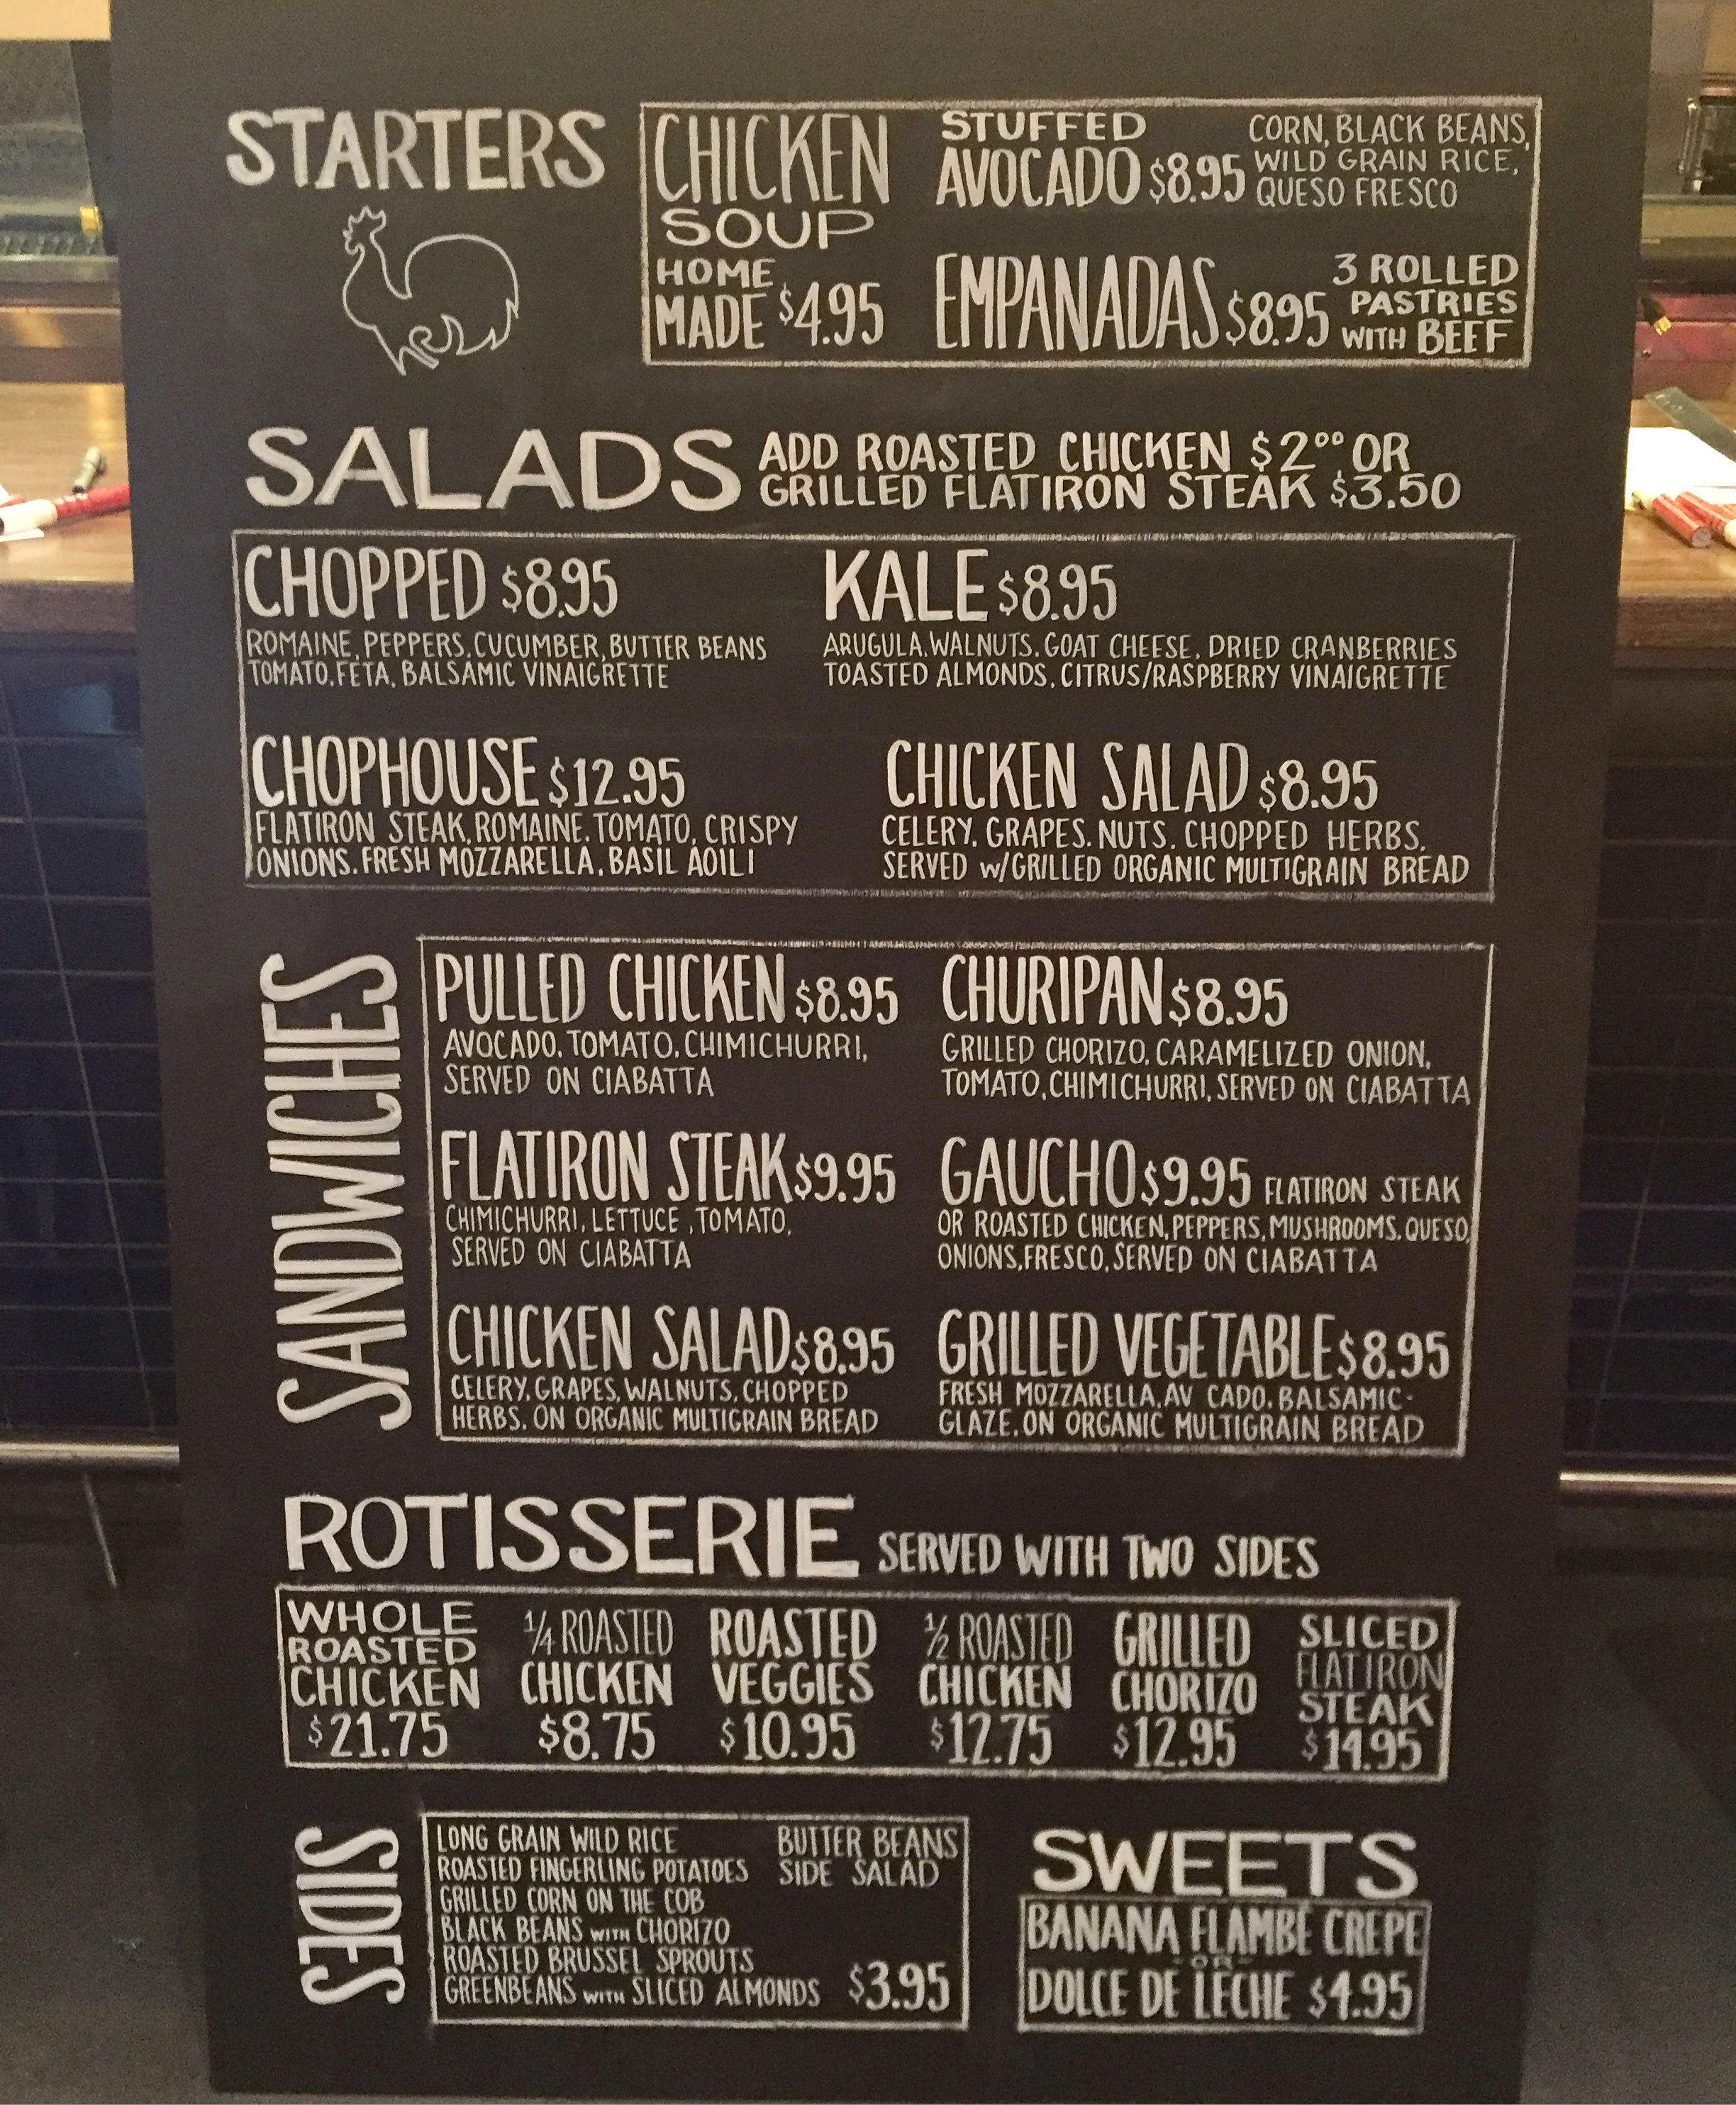 STARTERS
CHICKEN
SOUP
HOME
MADE $4.95
STUFFED
AVOCADO $8.95
CORN, BLACK BEANS,
WILD GRAIN RICE,
QUESO FRESCO
EMPANADAS $8.95
3 ROLLED
PASTRIES
WITH BEEF
SALADS
ADD ROASTED CHICKEN $2⁰⁰ OR
GRILLED FLATIRON STEAK $3.50
CHOPPED $8.95
ROMAINE, PEPPERS, CUCUMBER, BUTTER BEANS
TOMATO, FETA, BALSAMIC VINAIGRETTE
KALE $8.95
ARUGULA, WALNUTS, GOAT CHEESE, DRIED CRANBERRIES
TOASTED ALMONDS, CITRUS/RASPBERRY VINAIGRETTE
CHOPHOUSE $12.95
FLATIRON STEAK, ROMAINE, TOMATO, CRISPY
ONIONS, FRESH MOZZARELLA, BASIL AOILI
CHICKEN SALAD $8.95
CELERY, GRAPES, NUTS, CHOPPED HERBS,
SERVED W/GRILLED ORGANIC MULTIGRAIN BREAD
SANDWICHES
PULLED CHICKEN $8.95
AVOCADO, TOMATO, CHIMICHURRI,
SERVED ON CIABATTA
CHURIPAN $8.95
GRILLED CHORIZO, CARAMELIZED ONION,
TOMATO, CHIMICHURRI, SERVED ON CIABATTA
FLATIRON STEAK $9.95
CHIMICHURRI, LETTUCE, TOMATO,
SERVED ON CIABATTA
GAUCHO $9.95 FLATIRON STEAK
OR ROASTED CHICKEN, PEPPERS, MUSHROOMS, QUESO,
ONIONS, FRESCO, SERVED ON CIABATTA
CHICKEN SALAD $8.95
CELERY, GRAPES, WALNUTS, CHOPPED
HERBS, ON ORGANIC MULTIGRAIN BREAD
GRILLED VEGETABLE $8.95
FRESH MOZZARELLA, AV CADO, BALSAMIC-
GLAZE, ON ORGANIC MULTIGRAIN BREAD
ROTISSERIE SERVED WITH TWO SIDES
WHOLE
ROASTED
CHICKEN
$21.75
1/4 ROASTED
CHICKEN
$8.75
ROASTED
VEGGIES
$10.95
1/2 ROASTED
CHICKEN
$12.75
GRILLED
CHORIZO
$12.95
SLICED
FLATIRON
STEAK
$14.95
SIDES
LONG GRAIN WILD RICE
ROASTED FINGERLING POTATOES
GRILLED CORN ON THE COB
BLACK BEANS WITH CHORIZO
ROASTED BRUSSEL SPROUTS
GREENBEANS WITH SLICED ALMONDS
BUTTER BEANS
SIDE SALAD
$3.95
SWEETS
BANANA FLAMBÉ CREPE
-OR-
DOLCE DE LECHE $4.95